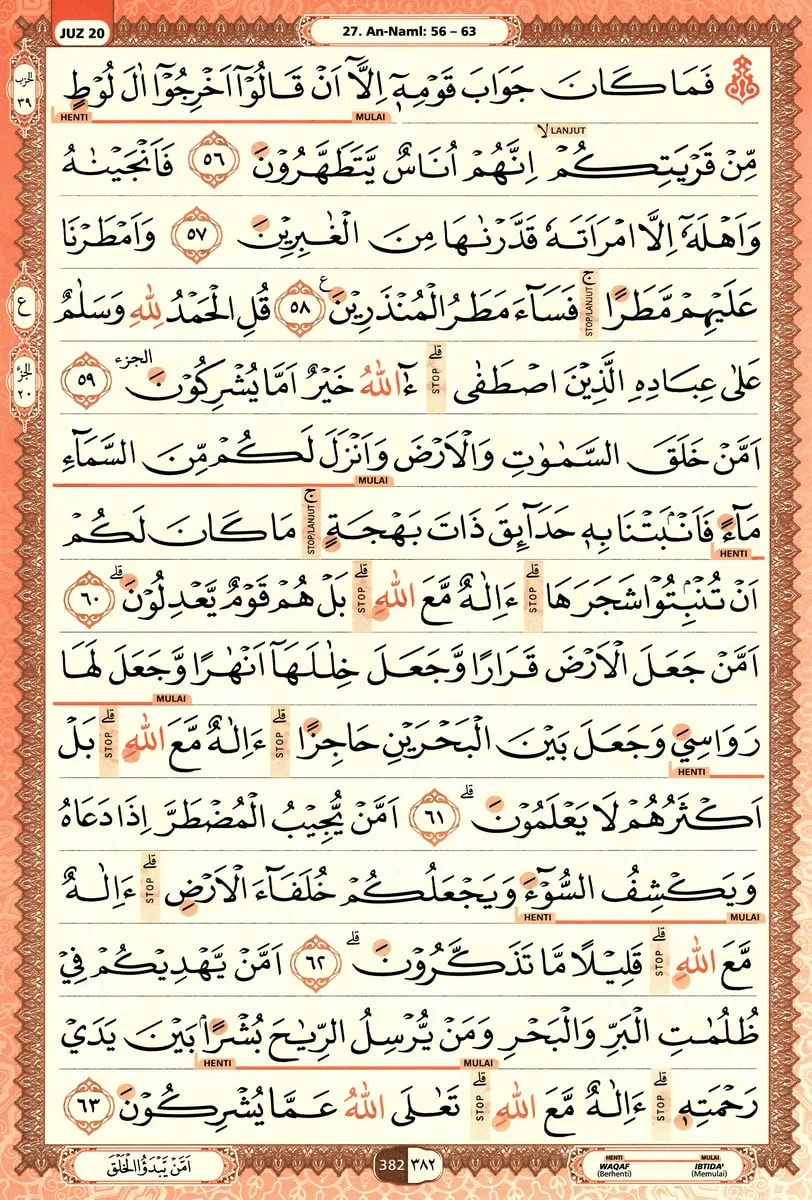 JUZ 20
27. An-Naml: 56 – 63
الحزب ٣٩
فَمَا كَانَ جَوَابَ قَوْمِهٖٓ اِلَّآ اَنْ قَالُوْٓا اَخْرِجُوْٓا اٰلَ لُوْطٍ
HENTI MULAI
LANJUT لا
مِّنْ قَرْيَتِكُمْ اِنَّهُمْ اُنَاسٌ يَّتَطَهَّرُوْنَ ٥٦ فَاَنْجَيْنٰهُ
وَاَهْلَهٗٓ اِلَّا امْرَاَتَهٗ قَدَّرْنٰهَا مِنَ الْغٰبِرِيْنَ ٥٧ وَاَمْطَرْنَا
عَلَيْهِمْ مَّطَرًاۚ STOP/LANJUT فَسَاۤءَ مَطَرُ الْمُنْذَرِيْنَ ࣖ ٥٨ قُلِ الْحَمْدُ لِلّٰهِ وَسَلٰمٌ
ع
عَلٰى عِبَادِهِ الَّذِيْنَ اصْطَفٰىۗ STOP ءٰۤاللّٰهُ خَيْرٌ اَمَّا يُشْرِكُوْنَ الجزء ٥٩
الجزء ٢٠
اَمَّنْ خَلَقَ السَّمٰوٰتِ وَالْاَرْضَ وَاَنْزَلَ لَكُمْ مِّنَ السَّمَاۤءِ
MULAI
مَاۤءًۚ فَاَنْۢبَتْنَا بِهٖ حَدَاۤىِٕقَ ذَاتَ بَهْجَةٍۚ STOP/LANJUT مَا كَانَ لَكُمْ
HENTI
اَنْ تُنْۢبِتُوْا شَجَرَهَاۗ STOP ءَاِلٰهٌ مَّعَ اللّٰهِۗ STOP بَلْ هُمْ قَوْمٌ يَّعْدِلُوْنَۗ ٦٠
اَمَّنْ جَعَلَ الْاَرْضَ قَرَارًا وَّجَعَلَ خِلٰلَهَآ اَنْهٰرًا وَّجَعَلَ لَهَا
MULAI
رَوَاسِيَ وَجَعَلَ بَيْنَ الْبَحْرَيْنِ حَاجِزًاۗ STOP ءَاِلٰهٌ مَّعَ اللّٰهِۗ STOP بَلْ
HENTI
اَكْثَرُهُمْ لَا يَعْلَمُوْنَۗ ٦١ اَمَّنْ يُّجِيْبُ الْمُضْطَرَّ اِذَا دَعَاهُ
وَيَكْشِفُ السُّوْۤءَ وَيَجْعَلُكُمْ خُلَفَاۤءَ الْاَرْضِۗ STOP ءَاِلٰهٌ
HENTI MULAI
مَّعَ اللّٰهِۗ STOP قَلِيْلًا مَّا تَذَكَّرُوْنَۗ ٦٢ اَمَّنْ يَّهْدِيْكُمْ فِيْ
ظُلُمٰتِ الْبَرِّ وَالْبَحْرِ وَمَنْ يُّرْسِلُ الرِّيٰحَ بُشْرًاۢ بَيْنَ يَدَيْ
HENTI MULAI
رَحْمَتِهٖۗ STOP ءَاِلٰهٌ مَّعَ اللّٰهِۗ STOP تَعٰلَى اللّٰهُ عَمَّا يُشْرِكُوْنَ ٦٣
اَمَّنْ يَّبْدَؤُا الْخَلْقَ
382 ٣٨٢
HENTI WAQAF (Berhenti)
MULAI IBTIDA' (Memulai)